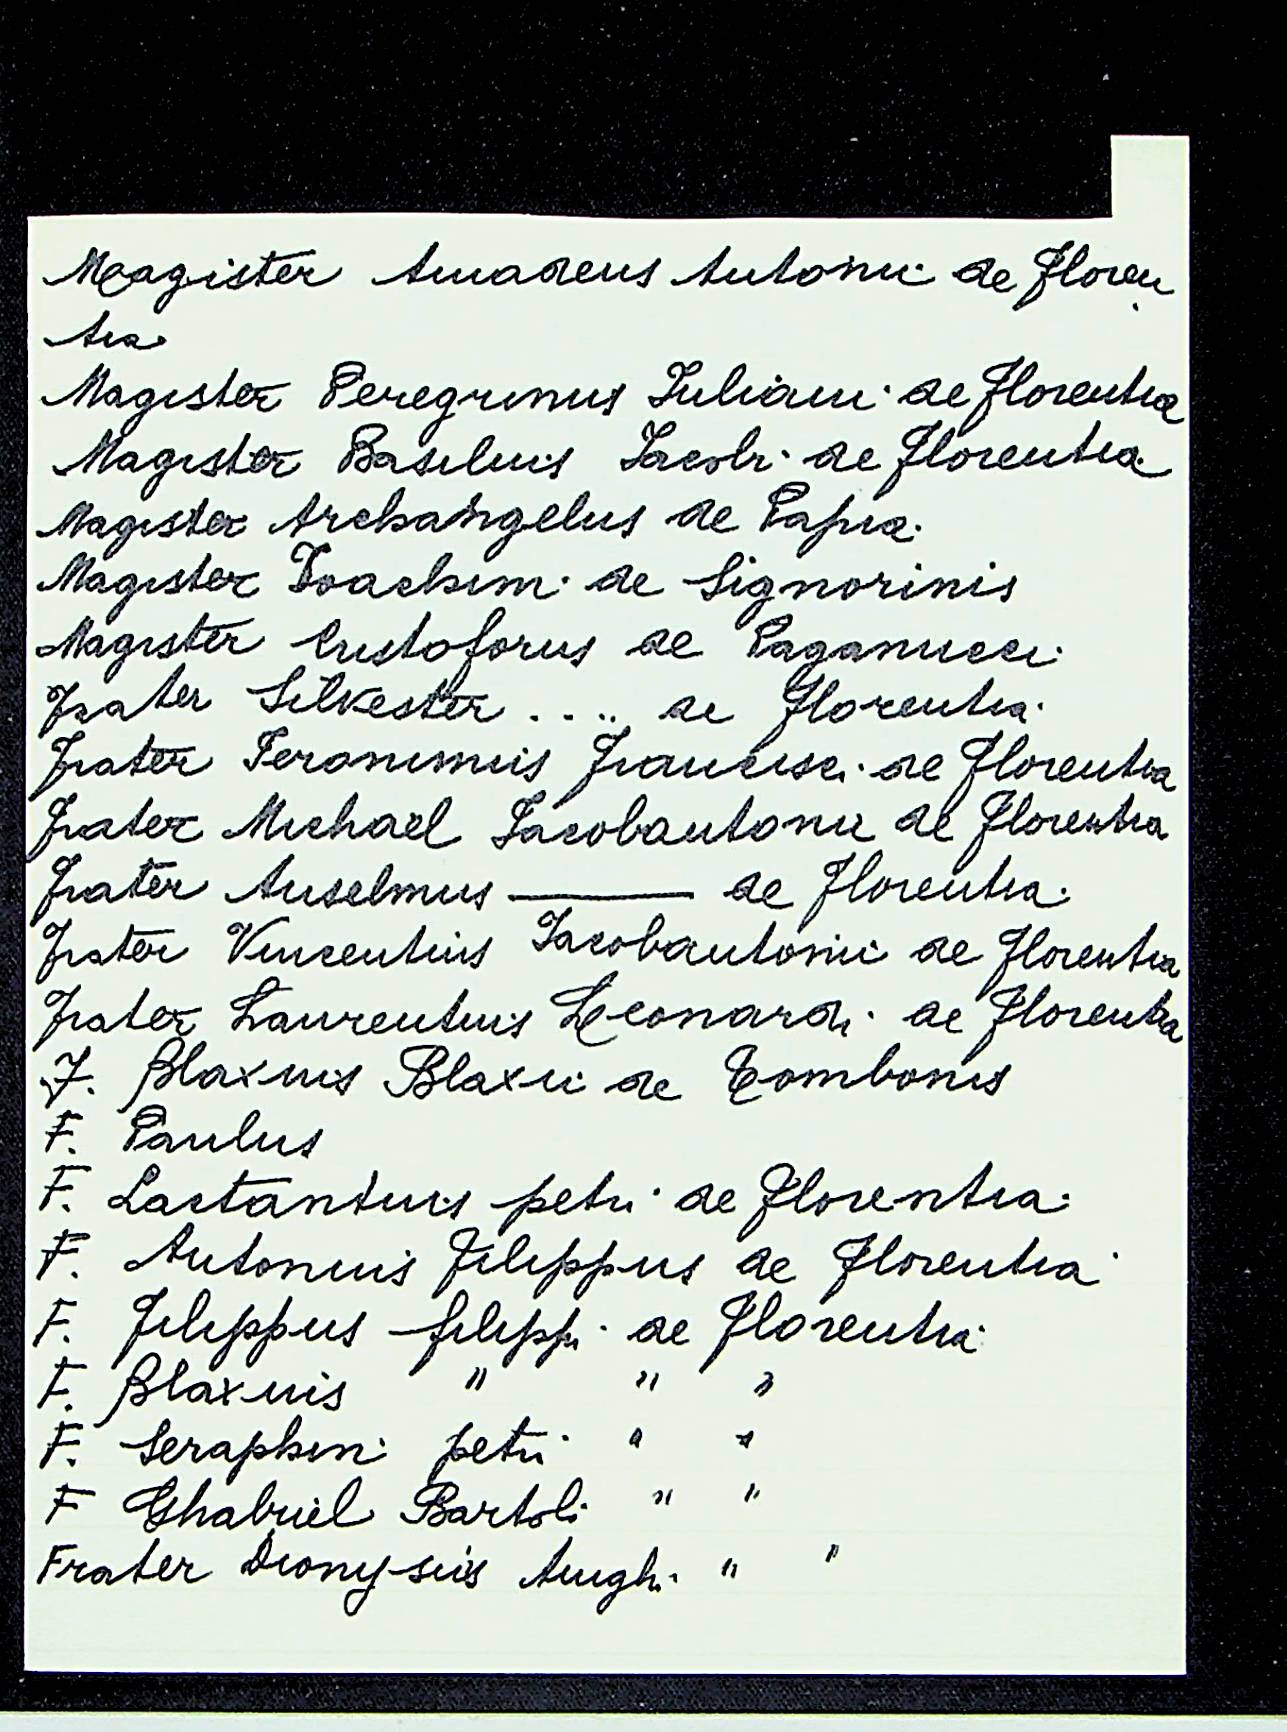 Magister Amadeus Antonii de Floren
tia
Magister Peregrinus Iuliani de Florentia
Magister Basilius Iacobi de Florentia
Magister Archangelus de Papia
Magister Ioachim de Signorinis
Magister Cristoforus de Paganucci
Frater Silvester .... de Florentia
Frater Ieronimus Francisci de Florentia
Frater Michael Iacobantonii de Florentia
Frater Anselmus ——— de Florentia
Frater Vincentius Iacobantonii de Florentia
Frater Laurentius Leonardi de Florentia
F. Blaxius Blaxii de Combonis
F. Paulus
F. Lactantius petri de Florentia
F. Antonius Filippus de Florentia
F. Filippus filippi de Florentia
F. Blaxius " " "
F. Seraphin petri " "
F Ghabriel Bartoli " "
Frater Dionysius " "